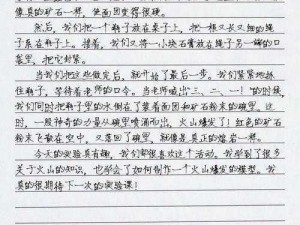 像真的矿石一样，使面团变得很硬。
然后，我们把一个瓶子放在桌子上，把一根又长又细的绳
子系在瓶子上。接着，我们又将一小块石膏放在绳子另一端的口
袋里，把它封紧。
当我们把这些做完后，就开始了最后一步。我们紧紧抓
住瓶子，等待着老师的口令。当老师喊出“三、二、一！”的时候，
我们同时把瓶子里的水倒在了装着面团和矿石粉末的碗里。这
时，一股神奇的力量从碗里喷涌而出，火山爆发了！红色的矿石粉
末飞散在空中，又落回了碗里，就像是真正的熔岩一样。
今天的实验真有趣，我们都很喜欢这个活动。我学到了很多
关于火山的知识，也学会了如何制作一个火山爆发的模型。我
真的很期待下一次的实验课！